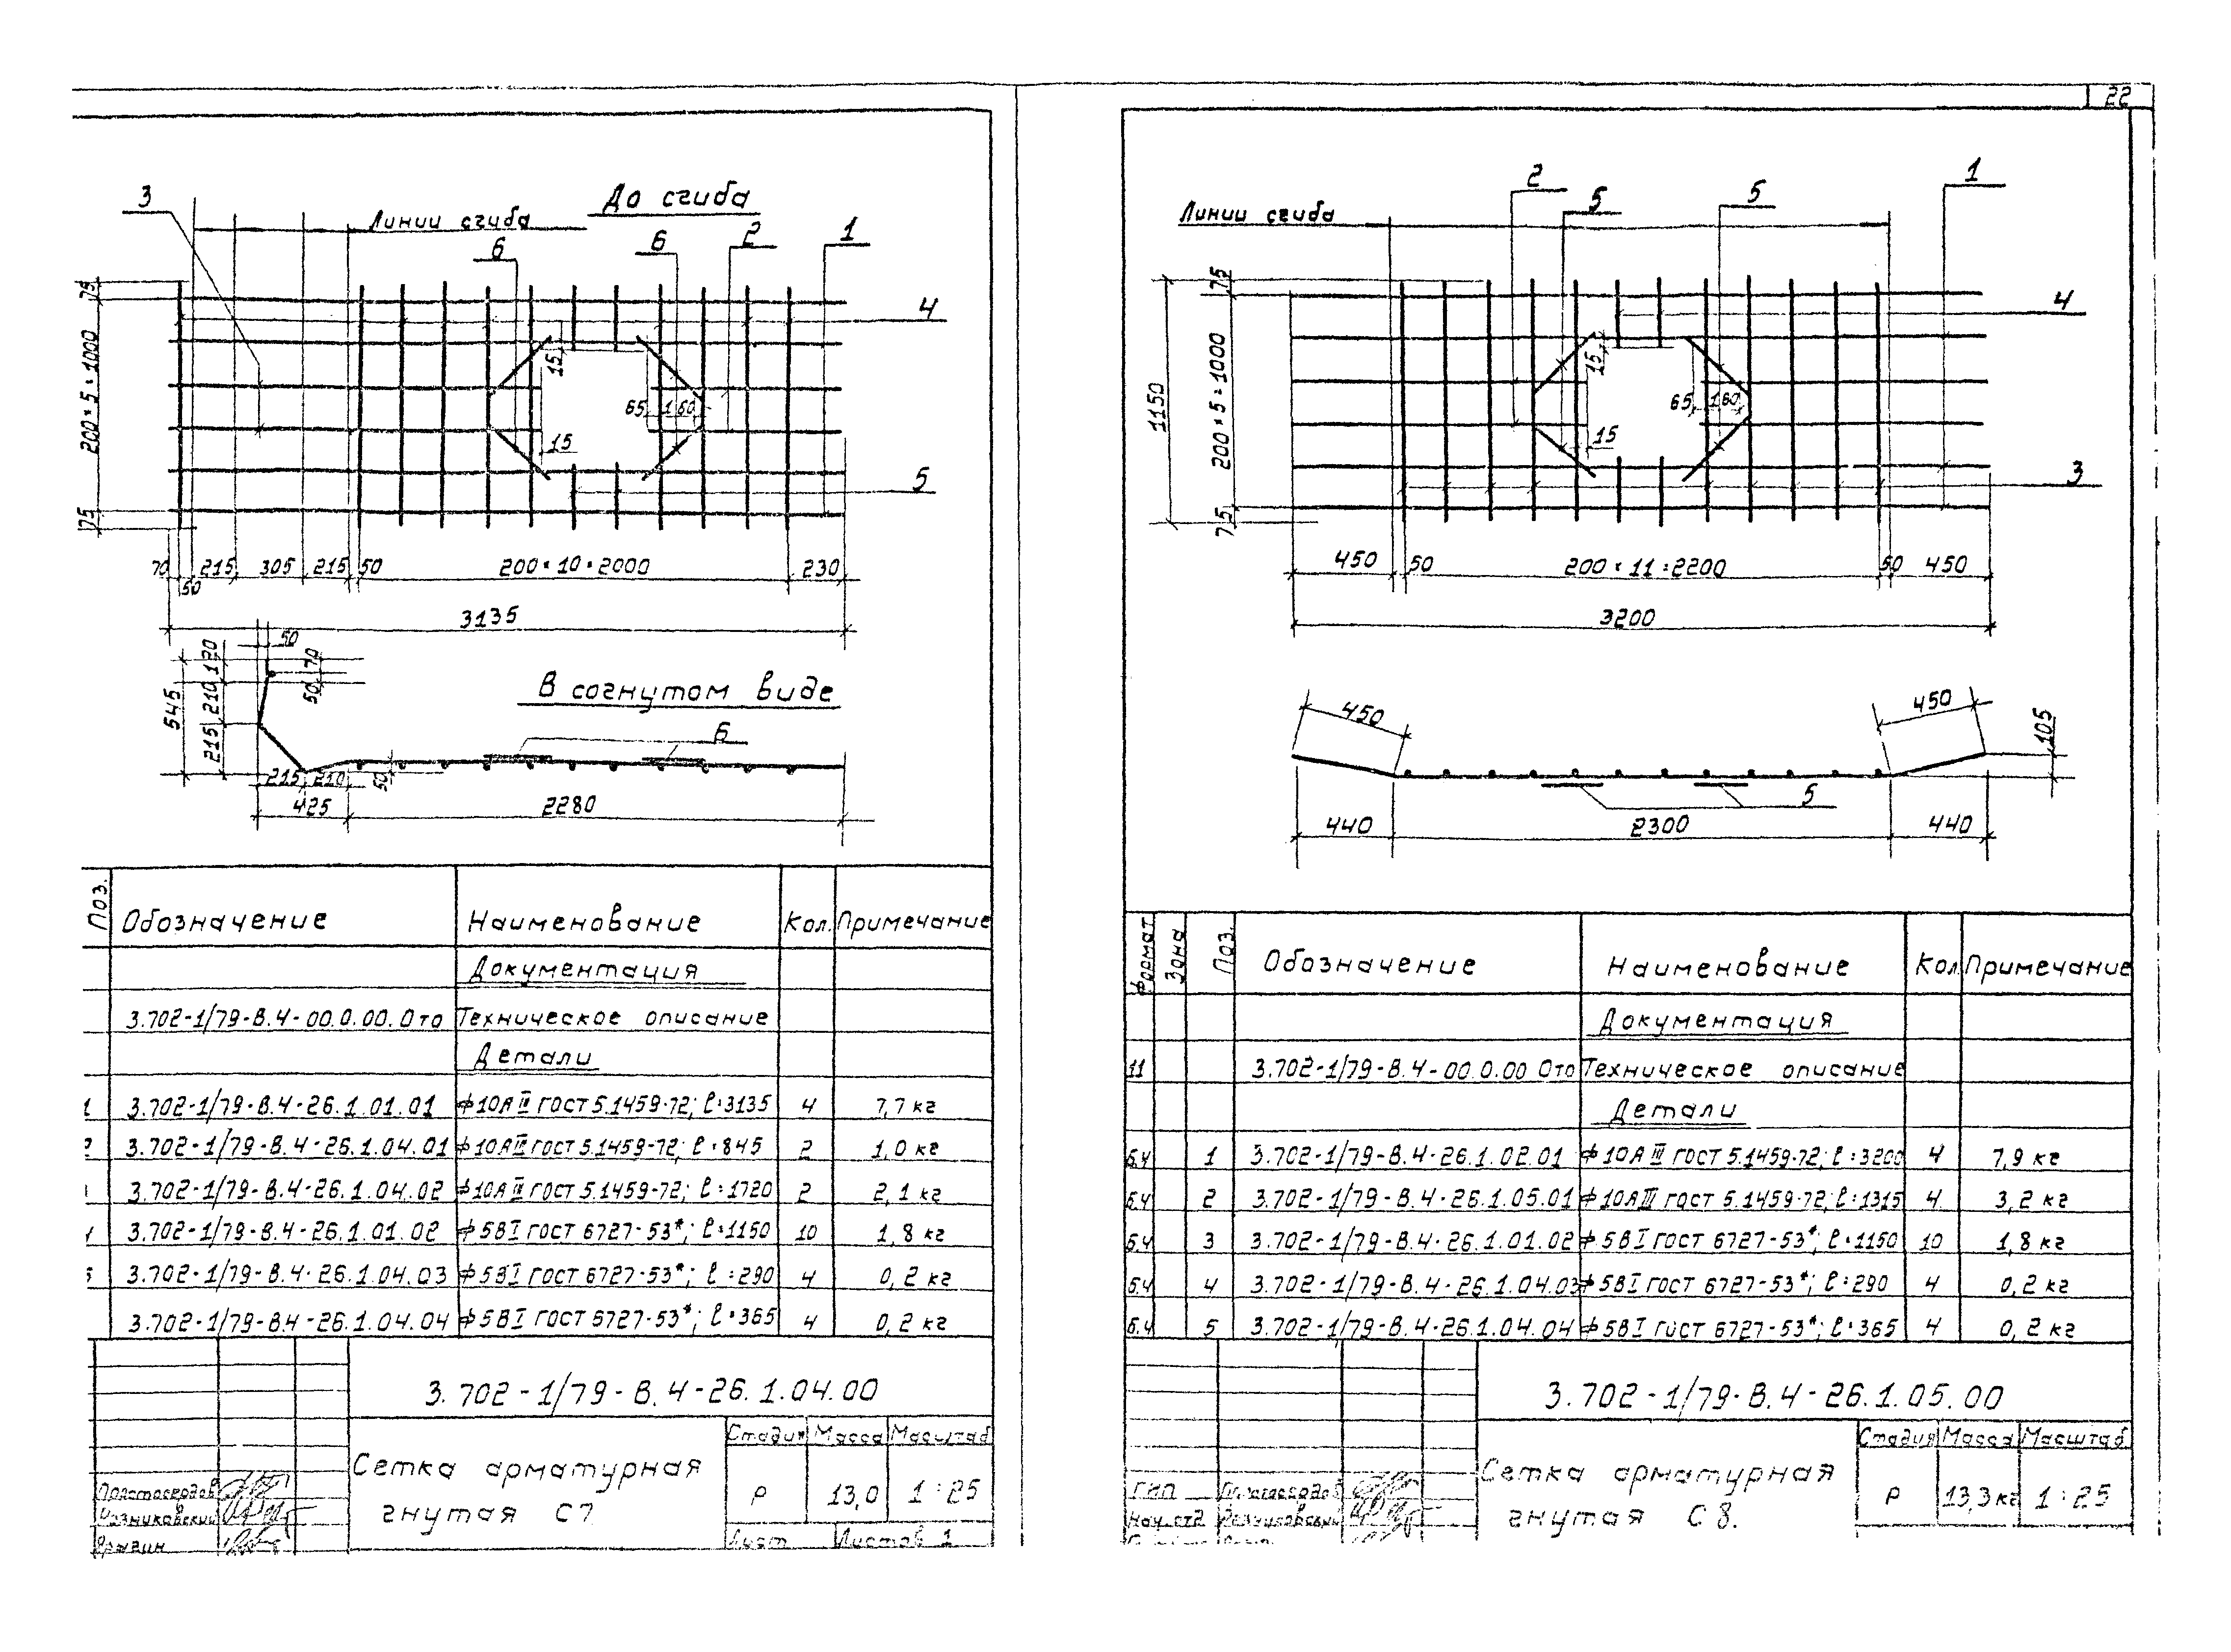 22
До сгиба
3
Линии сгиба
6
6
2
1
4
5
75
200×5=1000
75
15
15
65
160
70
50
215
305
215
50
200×10=2000
230
3135
50
120
70
50
210
215
545
В согнутом виде
6
215
210
50
425
2280
Поз.
Обозначение
Наименование
Кол.
Примечание
Документация
3.702-1/79-В.4-00.0.00.0то Техническое описание
Детали
1 3.702-1/79-В.4-26.1.01.01 ф10АIII ГОСТ 5.1459-72; l=3135 4 7,7 кг
3.702-1/79-В.4-26.1.04.01 ф10АIII ГОСТ 5.1459-72; l=845 2 1,0 кг
3.702-1/79-В.4-26.1.04.02 ф10АIII ГОСТ 5.1459-72; l=1720 2 2,1 кг
3.702-1/79-В.4-26.1.01.02 ф5ВI ГОСТ 6727-53*; l=1150 10 1,8 кг
3.702-1/79-В.4-26.1.04.03 ф5ВI ГОСТ 6727-53*; l=290 4 0,2 кг
3.702-1/79-В.4-26.1.04.04 ф5ВI ГОСТ 6727-53*; l=365 4 0,2 кг
3.702-1/79-В.4-26.1.04.00
Сетка арматурная
гнутая С7
Стадия Масса Масштаб
Р 13,0 1:25
Лист Листов 1
2
5
5
1
Линии сгиба
4
3
75
200×5=1000
75
1150
15
15
65
160
450
50
200×11=2200
50
450
3200
450
450
105
5
440
2300
440
Формат
Зона
Поз.
Обозначение
Наименование
Кол.
Примечание
Документация
11 3.702-1/79-В.4-00.0.00 0то Техническое описание
Детали
Б.Ч 1 3.702-1/79-В.4-26.1.02.01 ф10АIII ГОСТ 5.1459-72; l=3200 4 7,9 кг
Б.Ч 2 3.702-1/79-В.4-26.1.05.01 ф10АIII ГОСТ 5.1459-72; l=1315 4 3,2 кг
Б.Ч 3 3.702-1/79-В.4-26.1.01.02 ф5ВI ГОСТ 6727-53*; l=1150 10 1,8 кг
Б.Ч 4 3.702-1/79-В.4-26.1.04.03 ф5ВI ГОСТ 6727-53*; l=290 4 0,2 кг
Б.Ч 5 3.702-1/79-В.4-26.1.04.04 ф5ВI ГОСТ 6727-53*; l=365 4 0,2 кг
3.702-1/79-В.4-26.1.05.00
Сетка арматурная
гнутая С8.
Стадия Масса Масштаб
Р 13,3 кг 1:25
ГИП
Нач.отд